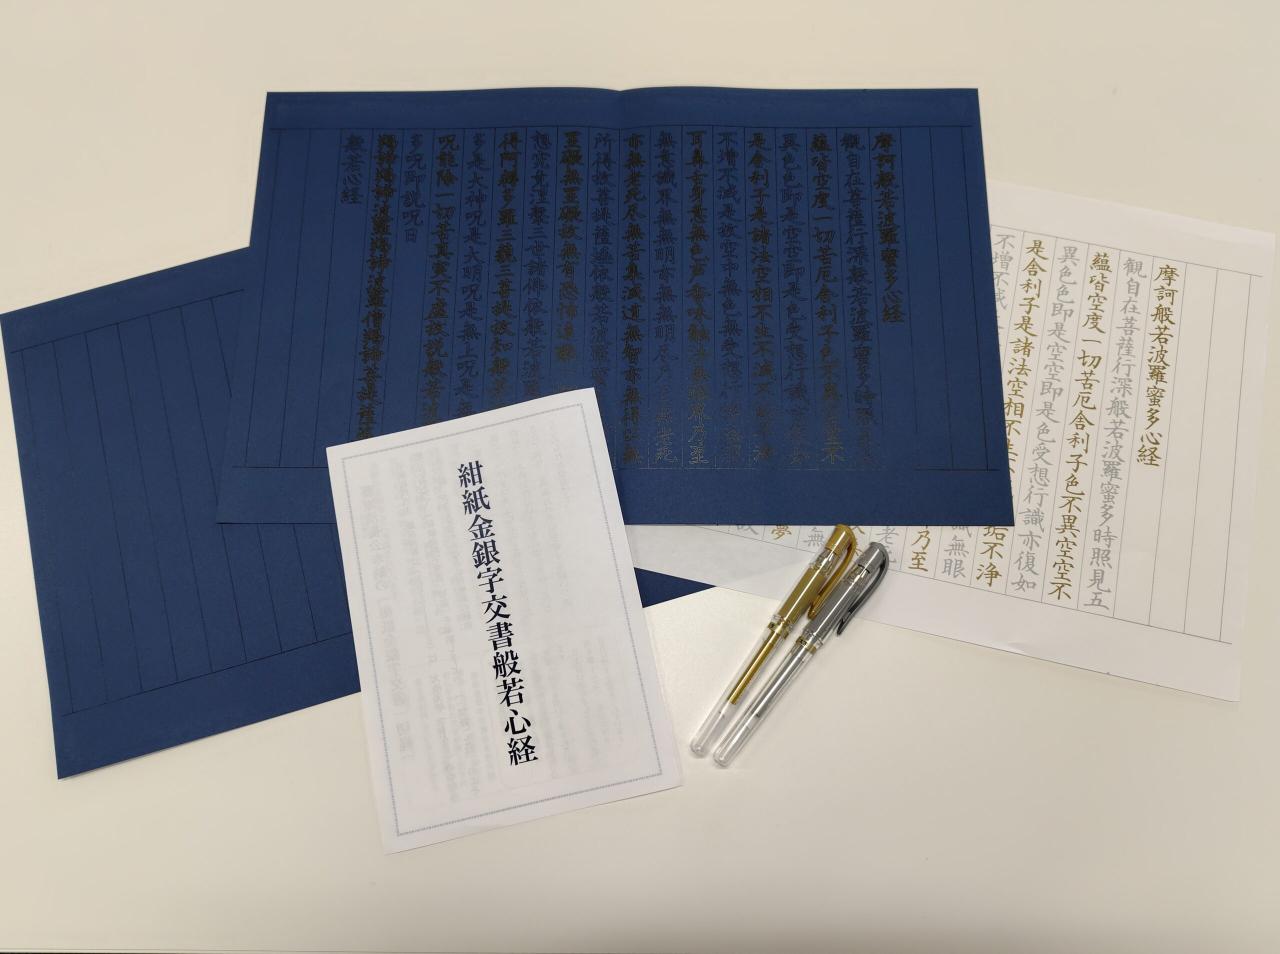 摩訶般若波羅蜜多心経
観自在菩薩行深般若波羅蜜多時照見五
蘊皆空度一切苦厄舎利子色不異空空不
異色色即是空空即是色受想行識亦復如
是舎利子是諸法空相不生不滅不垢不浄
不増不減是故空中無色無受想行識無眼
耳鼻舌身意無色声香味触法無眼界乃至
無意識界無無明亦無無明尽乃至無老死
亦無老死尽無苦集滅道無智亦無得以無
所得故菩提薩埵依般若波羅蜜
罣礙無罣礙故無有恐怖遠離
想究竟涅槃三世諸佛依般若波羅
得阿耨多羅三藐三菩提故知般若
多是大神呪是大明呪是無上呪是無
呪能除一切苦真実不虚故説般若波
多呪即説呪曰
羯諦羯諦波羅羯諦波羅僧羯諦菩提薩
般若心経
紺紙金銀字交書般若心経
摩訶般若波羅蜜多心経
観自在菩薩行深般若波羅蜜多時照見五
蘊皆空度一切苦厄舎利子色不異空空不
異色色即是空空即是色受想行識亦復如
是舎利子是諸法空相不生不
垢不浄
不増不減
識無眼
乃至
老
夢